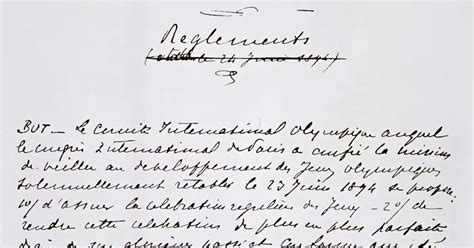 Reglements
(établi le 24 Juin 1894)
BUT — Le Comité International Olympique auquel
le congrès International de Paris a confié la mission
de veiller au developpement des Jeux Olympiques
solennellement retablis le 23 Juin 1894 se propose
1o/ d'assurer la celebration reguliere des Jeux — 2o/ de
rendre cette celebration de plus en plus parfaite